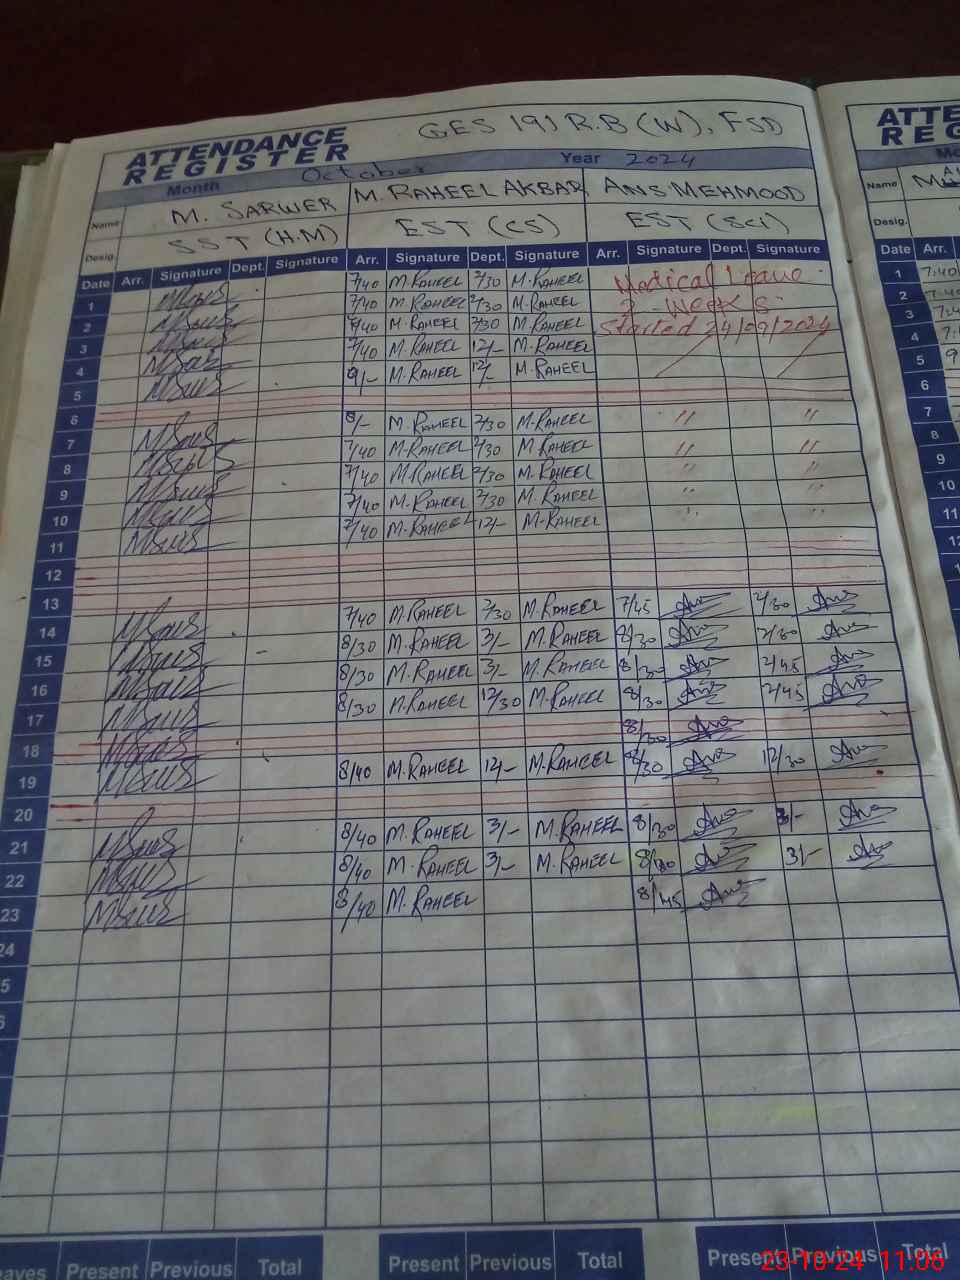 GES 191 R.B (W), FSD
ATTENDANCE REGISTER
Month October Year 2024
Name M. SARWER M. RAHEEL AKBAR ANS MEHMOOD
Desig. SST (H.M) EST (CS) EST (Sci)
Date Arr. Signature Dept. Signature Arr. Signature Dept. Signature Arr. Signature Dept. Signature
1 7/40 M.RAHEEL 2/30 M.RAHEEL Medical Leave
2 7/40 M.RAHEEL 2/30 M.RAHEEL Weeks
3 7/40 M.RAHEEL 2/30 M.RAHEEL Started 24/09/2024
4 7/40 M.RAHEEL 12/- M.RAHEEL
5 9/- M.RAHEEL 12/- M.RAHEEL
6
7 8/- M.RAHEEL 2/30 M.RAHEEL " "
8 7/40 M.RAHEEL 2/30 M.RAHEEL " "
9 7/40 M.RAHEEL 2/30 M.RAHEEL " "
10 7/40 M.RAHEEL 2/30 M.RAHEEL " "
11 7/40 M.RAHEEL 12/- M.RAHEEL " "
12
13
14 7/40 M.RAHEEL 2/30 M.RAHEEL 7/45 Ans 2/30 Ans
15 8/30 M.RAHEEL 3/- M.RAHEEL 8/30 Ans 2/30 Ans
16 8/30 M.RAHEEL 3/- M.RAHEEL 8/30 Ans 2/45 Ans
17 8/30 M.RAHEEL 12/30 M.RAHEEL 8/30 Ans 2/45 Ans
18 8/30 Ans
19 8/40 M.RAHEEL 12/- M.RAHEEL 8/30 Ans 12/30 Ans
20
21 8/40 M.RAHEEL 3/- M.RAHEEL 8/30 Ans 3/- Ans
22 8/40 M.RAHEEL 3/- M.RAHEEL Ans 3/- Ans
23 8/40 M.RAHEEL 8/45 Ans
24
5
6
eaves Present Previous Total Present Previous Total Present Previous Total
ATTE
REG
Name
Desig.
Date Arr.
1 7:40
2 7:40
3
4
5
6
7
8
9
10
11
23-10-24 11:06